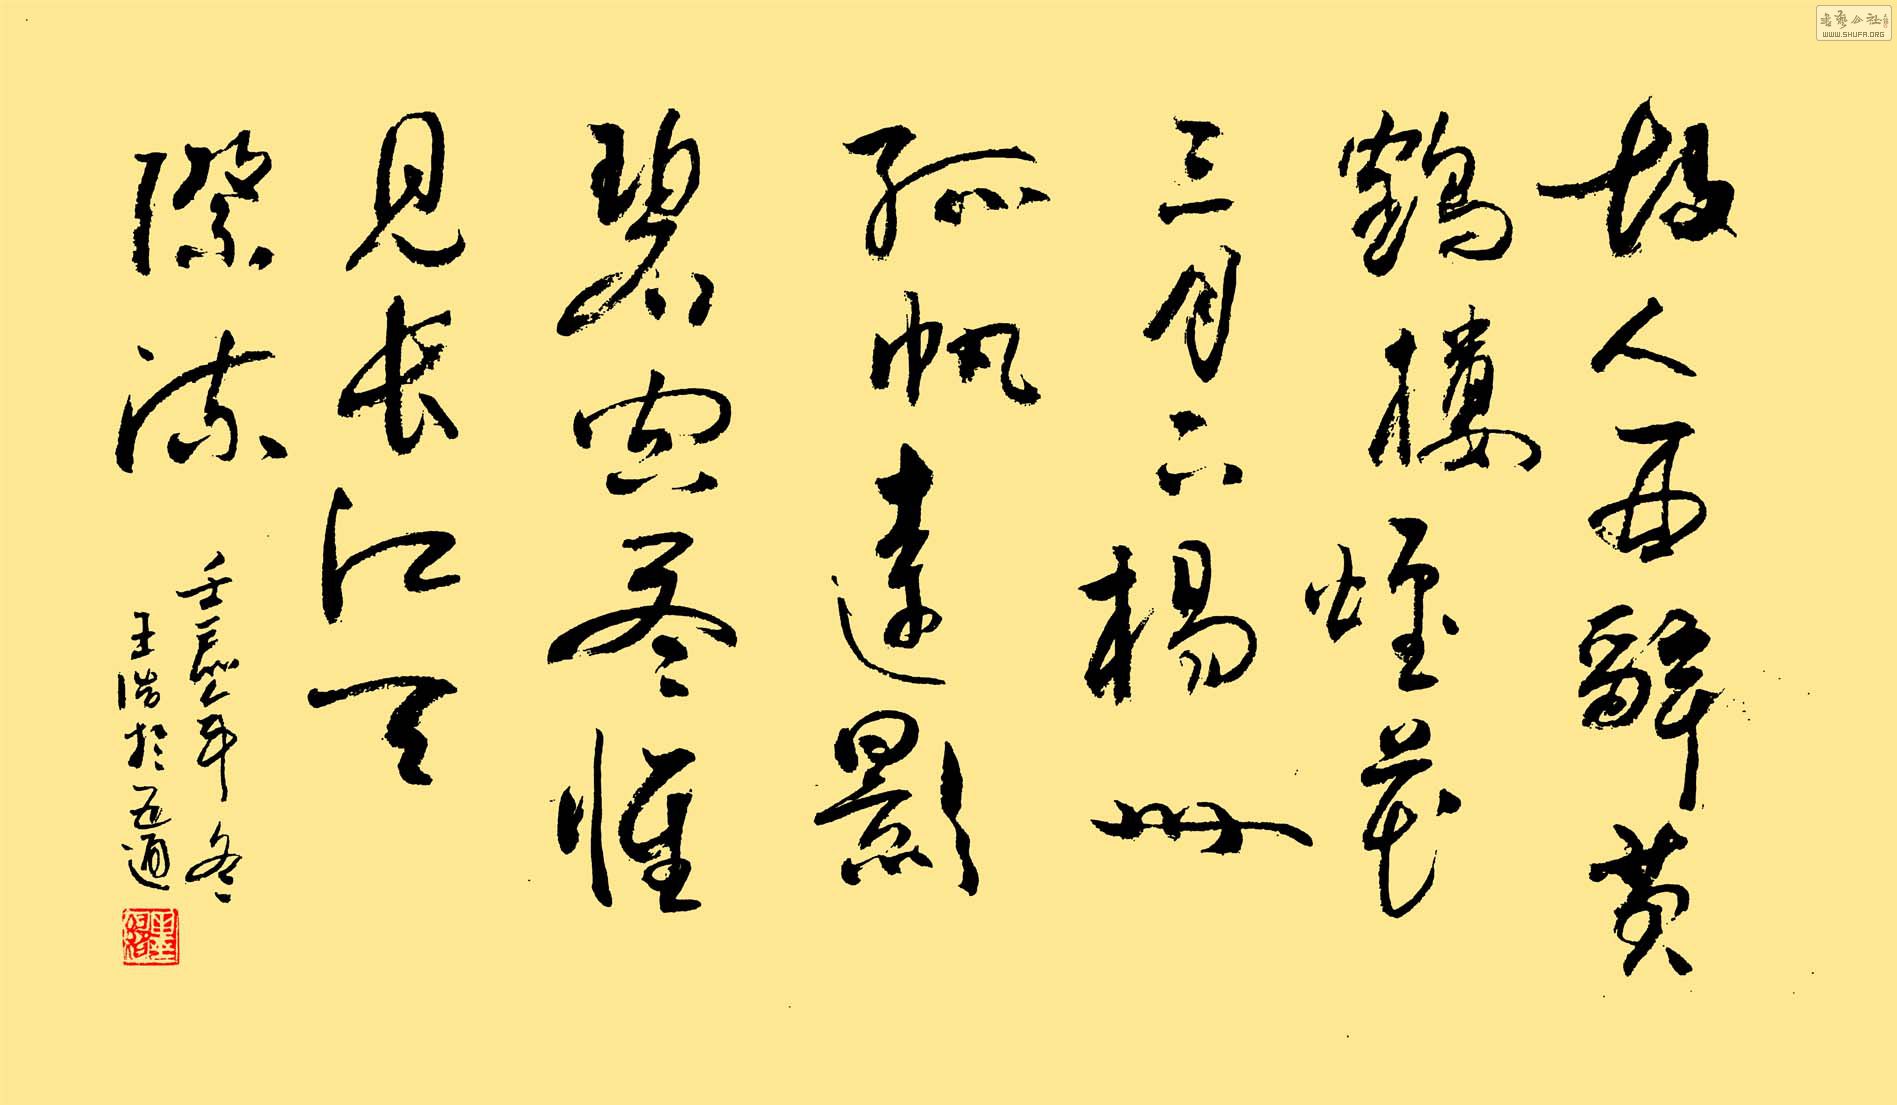 故人西辭黄
鶴樓煙花
三月下楊州
孤帆遠影
碧空尽惟
見长江天
際流
壬辰年冬
王浩於五通
書藝公社
WWW.SHUFA.ORG